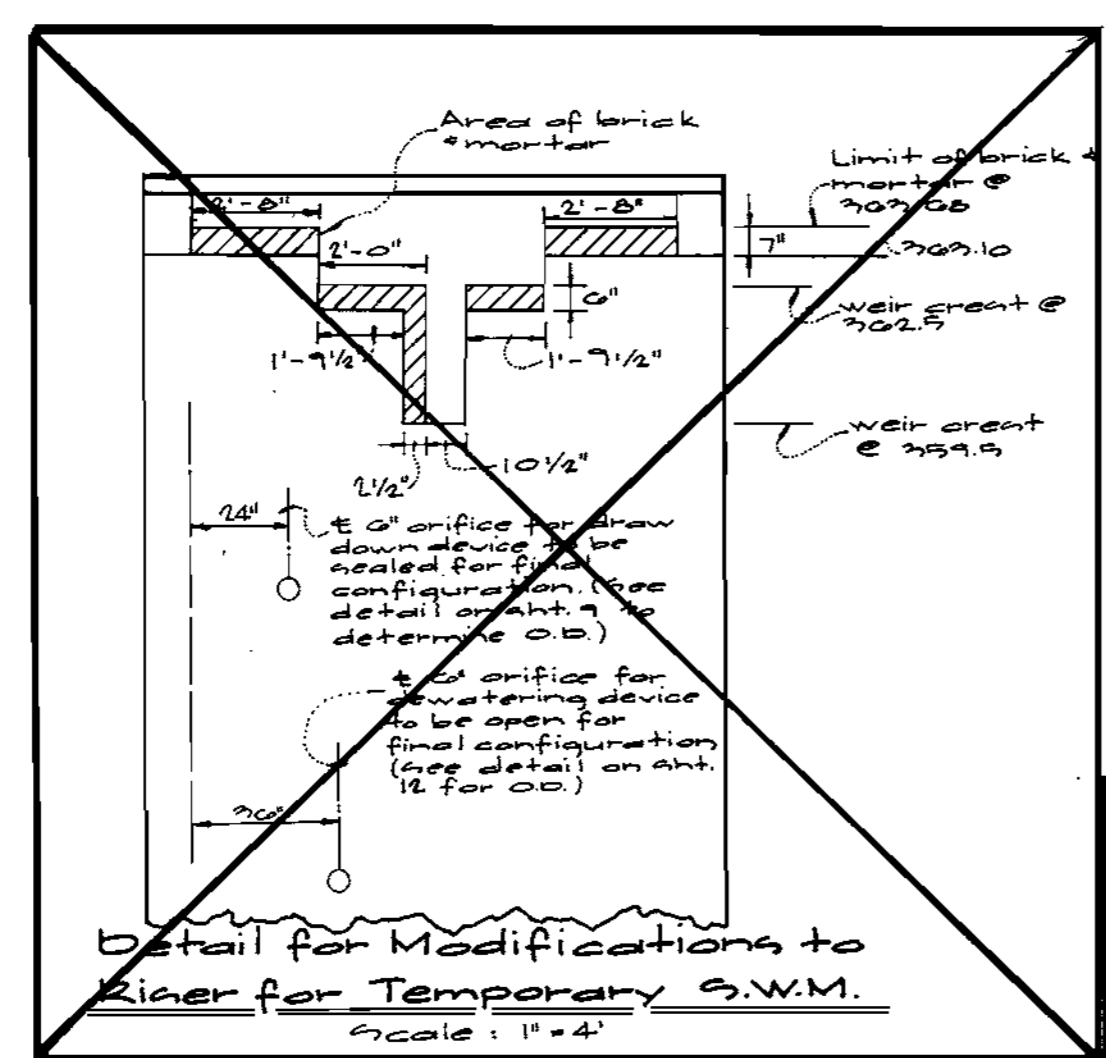 Area of brick
& mortar
Limit of brick &
mortar @
363.68
2'-8"
2'-8"
7"
363.10
2'-0"
6"
weir crest @
362.5
1'-9 1/2"
1'-9 1/2"
weir crest
@ 359.5
10 1/2"
2 1/2"
24"
℄ 6" orifice for draw
down device to be
sealed for final
configuration. (See
detail on sht. 9 to
determine O.D.)
℄ 6" orifice for
dewatering device
to be open for
final configuration
(see detail on sht.
12 for O.D.)
36"
Detail for Modifications to
Riser for Temporary S.W.M.
Scale : 1" = 4'